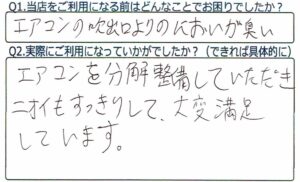 Q1.当店をご利用になる前はどんなことでお困りでしたか？
エアコンの吹出口よりのにおいが臭い
Q2.実際にご利用になっていかがでしたか？（できれば具体的に）
エアコンを分解整備していただき
ニオイもすっきりして、大変満足
しています。